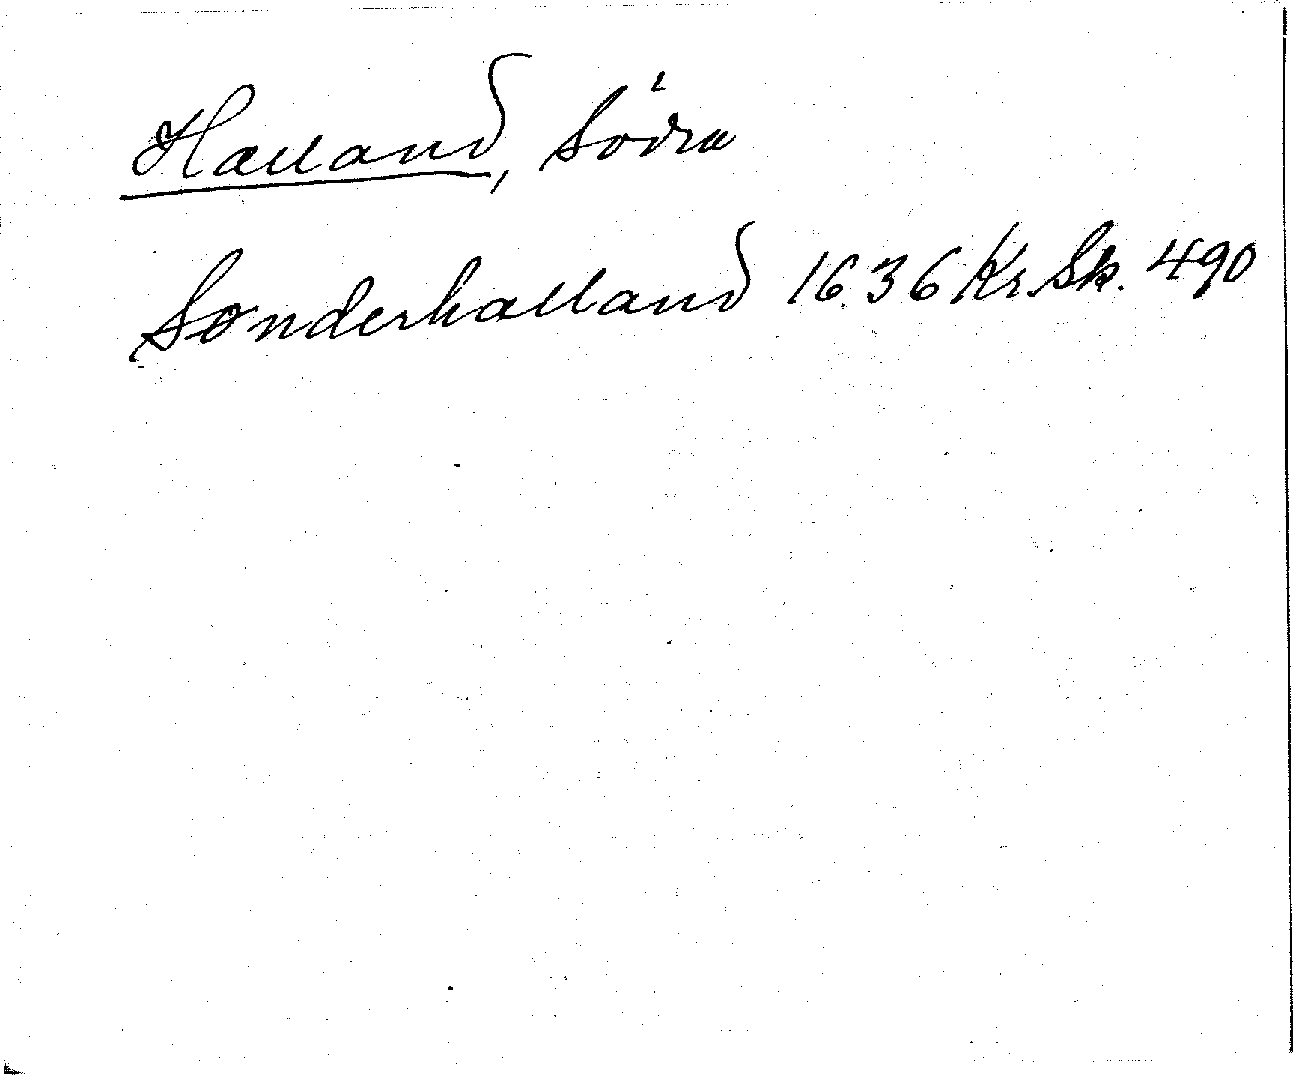 Halland, Södra
Sønderhalland 1636 Kr. Sk. 490